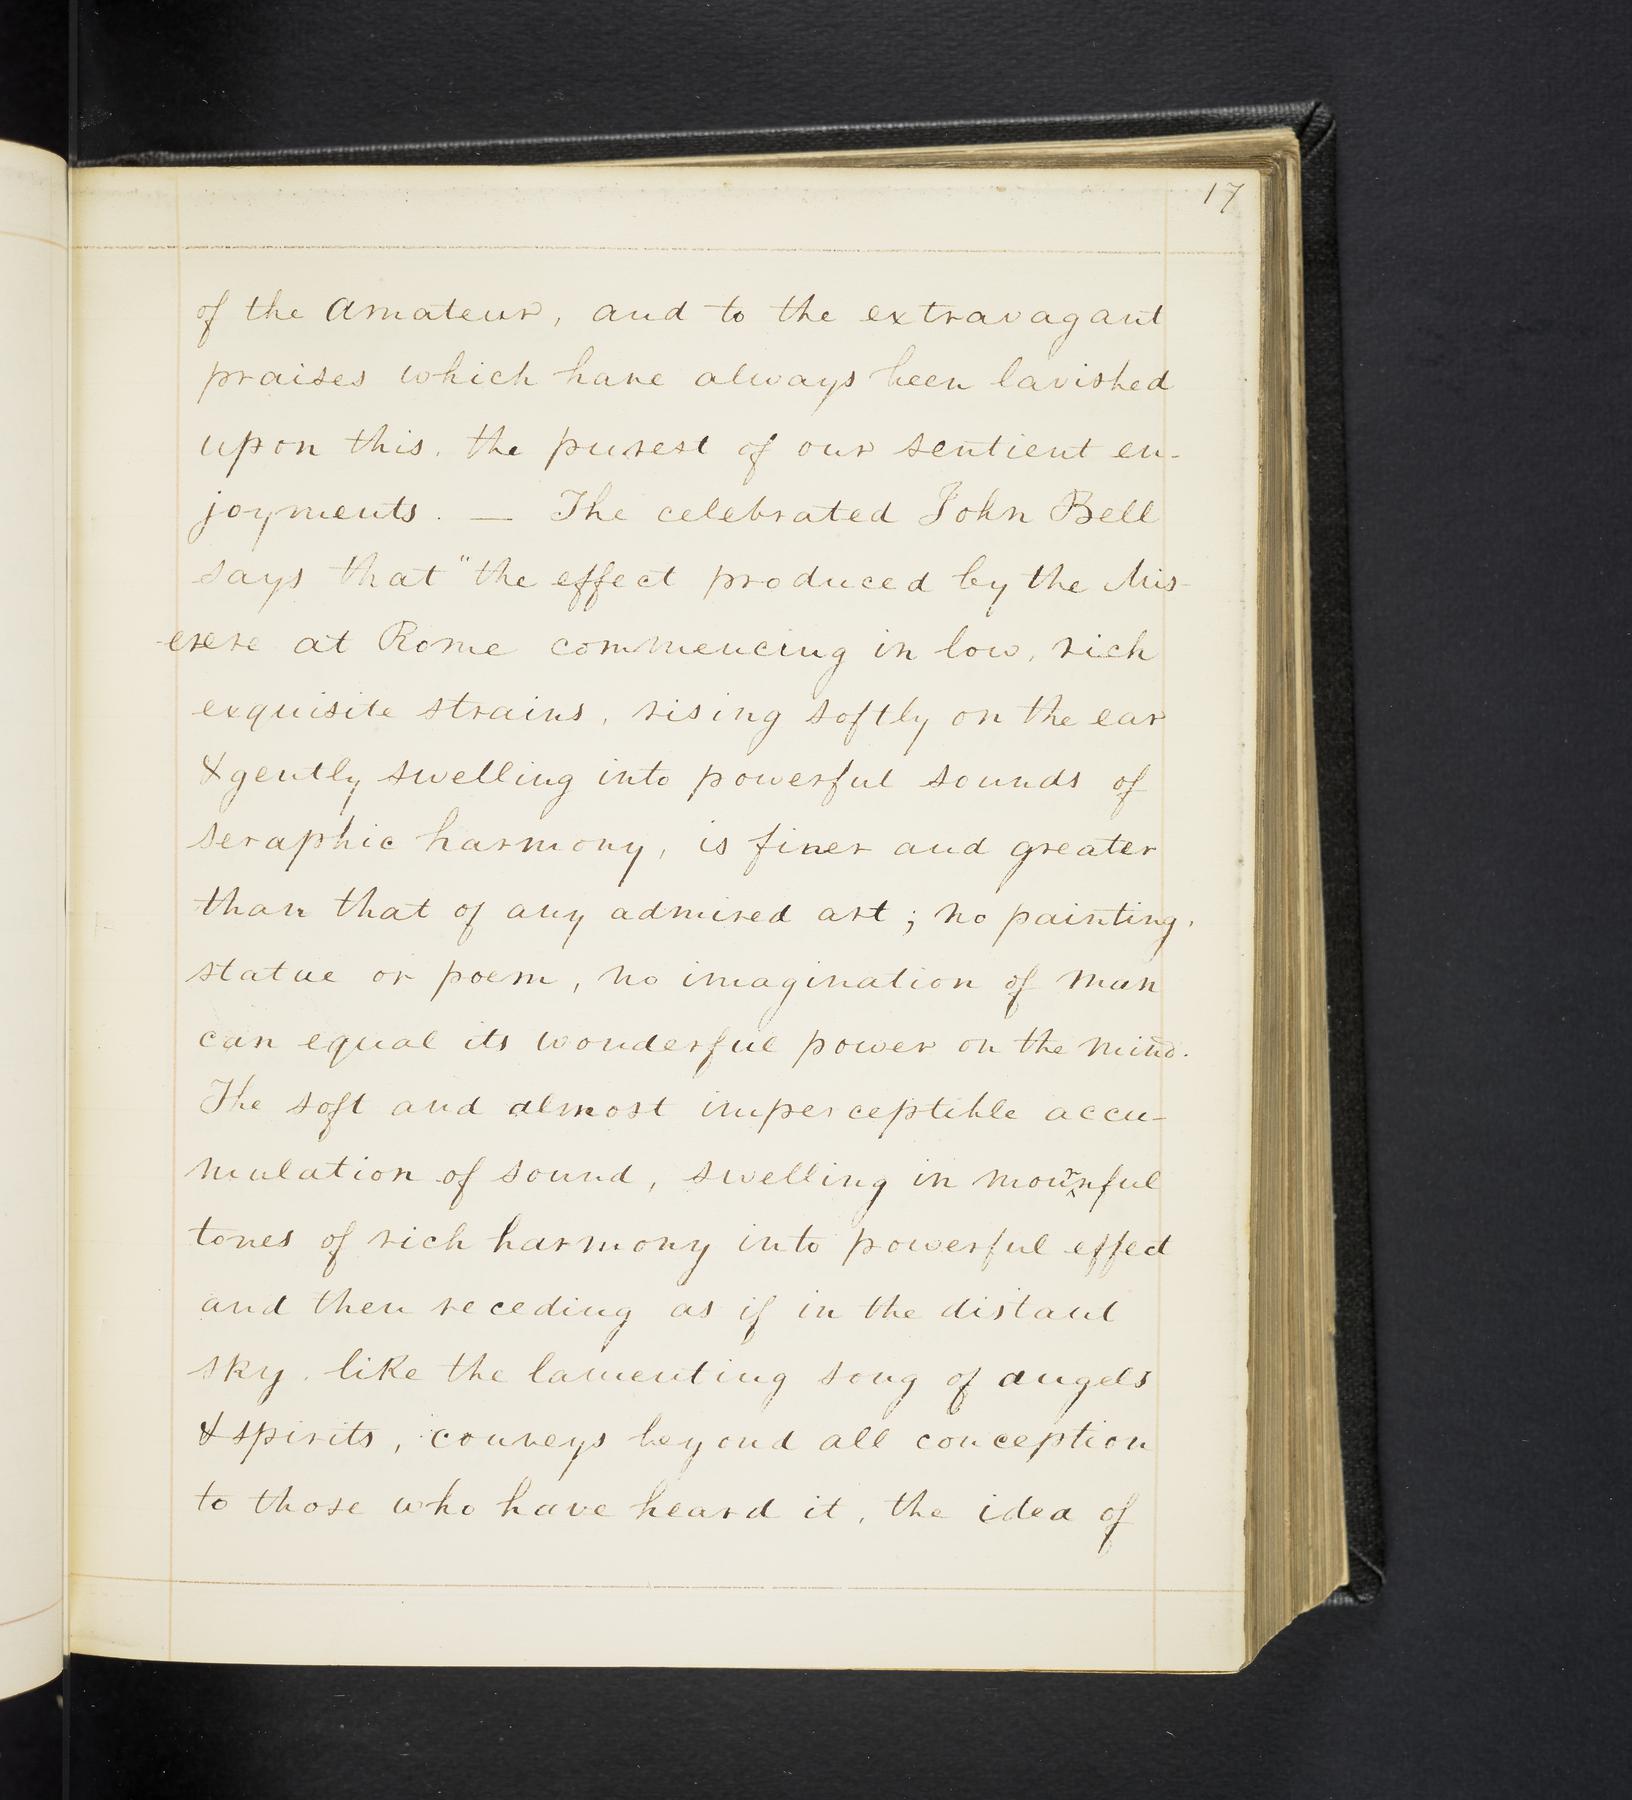 17
of the Amateur, and to the extravagant
praises which have always been lavished
upon this, the purest of our sentient en-
joyments. — The celebrated John Bell
says that "the effect produced by the Mis-
-erere at Rome commencing in low, rich
exquisite strains, rising softly on the ear
& gently swelling into powerful sounds of
seraphic harmony, is finer and greater
than that of any admired art; no painting,
statue or poem, no imagination of man
can equal its wonderful power on the mind.
The soft and almost imperceptible accu-
mulation of sound, swelling in mournful
tones of rich harmony into powerful effect
and then receding as if in the distant
sky, like the lamenting song of angels
& spirits, conveys beyond all conception
to those who have heard it, the idea of